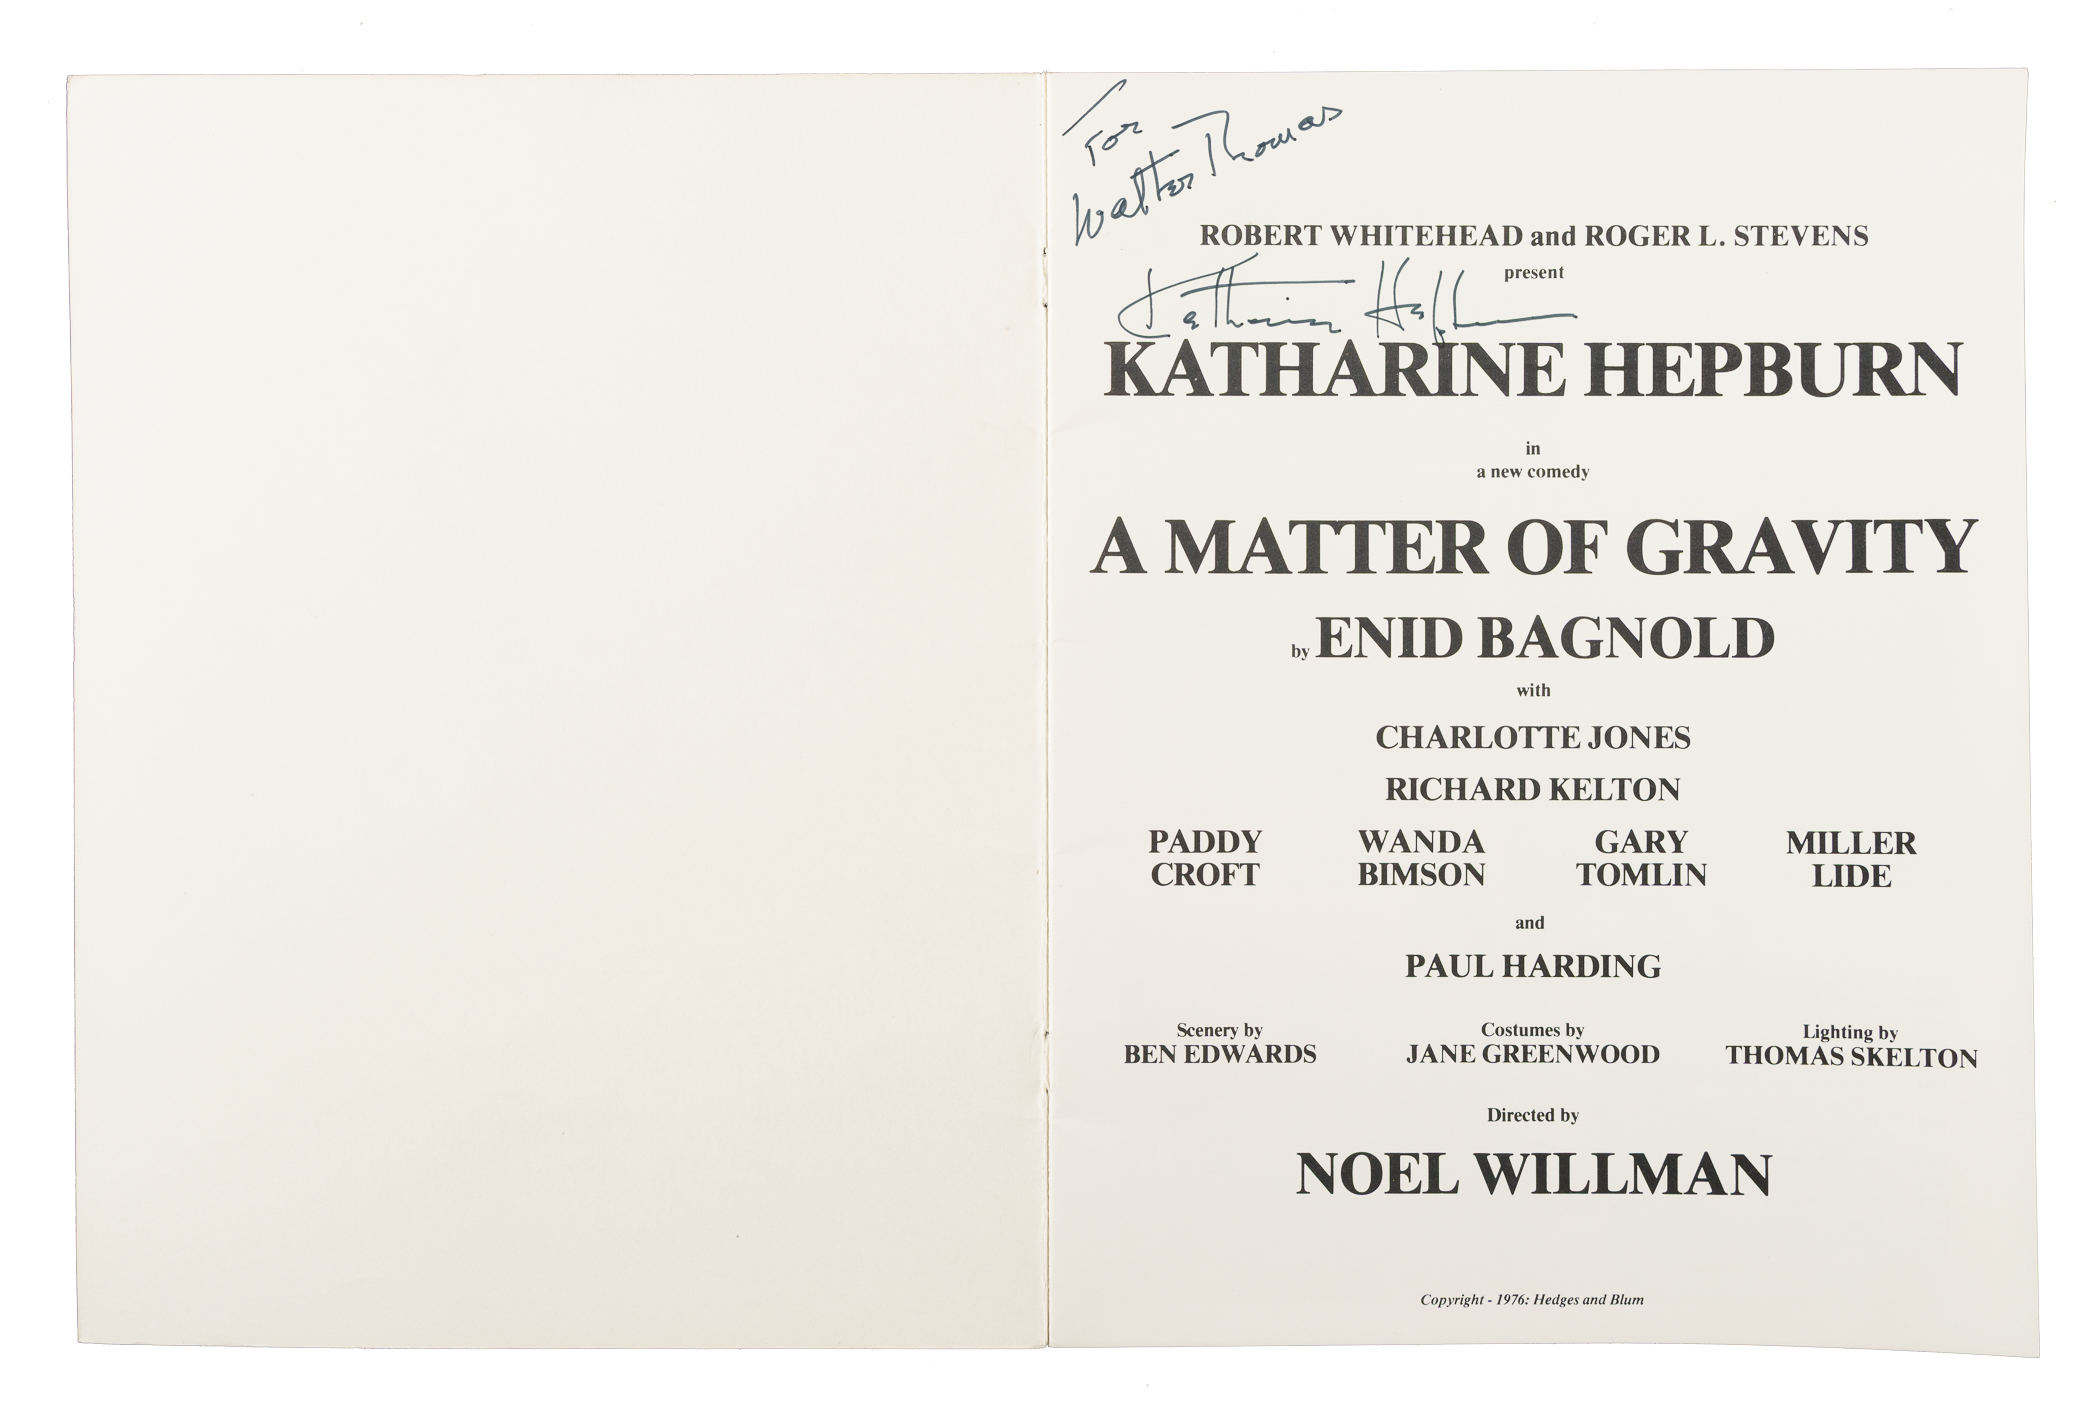 For
Walter Thomas
ROBERT WHITEHEAD and ROGER L. STEVENS
present
Katharine Hepburn
KATHARINE HEPBURN
in
a new comedy
A MATTER OF GRAVITY
by ENID BAGNOLD
with
CHARLOTTE JONES
RICHARD KELTON
PADDY WANDA GARY MILLER
CROFT BIMSON TOMLIN LIDE
and
PAUL HARDING
Scenery by Costumes by Lighting by
BEN EDWARDS JANE GREENWOOD THOMAS SKELTON
Directed by
NOEL WILLMAN
Copyright - 1976: Hedges and Blum